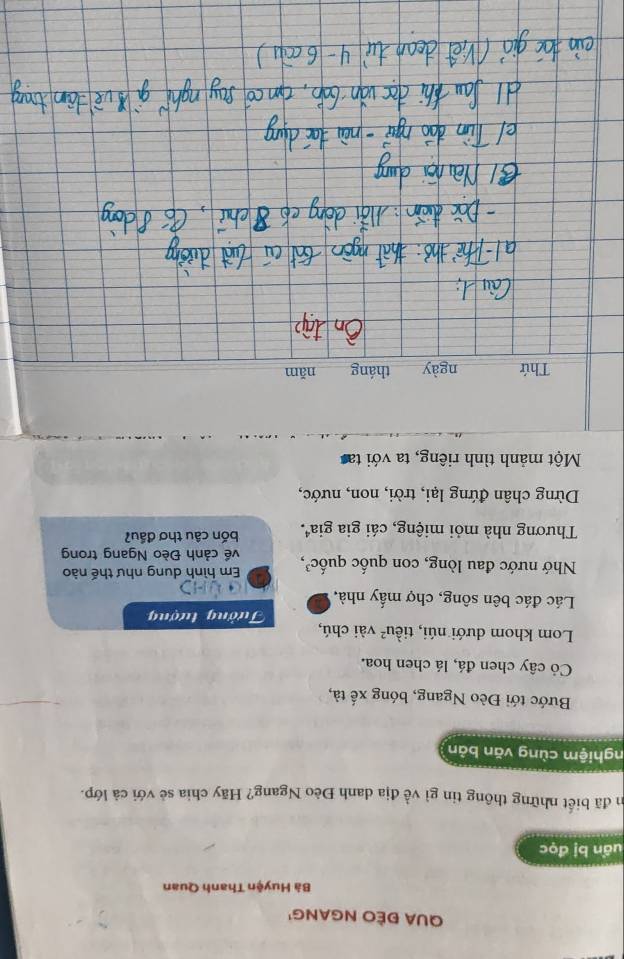 QUA ĐÈO NGANG¹
Bà Huyện Thanh Quan
uẩn bị đọc
n đã biết những thông tin gì về địa danh Đèo Ngang? Hãy chia sẻ với cả lớp.
nghiệm cùng văn bản
Bước tới Đèo Ngang, bóng xế tà,
Cỏ cây chen đá, lá chen hoa.
Lom khom dưới núi, tiều² vài chú,
Lác đác bên sông, chợ mấy nhà.
Nhớ nước đau lòng, con quốc quốc³,
Thương nhà mỏi miệng, cái gia gia⁴.
Dừng chân đứng lại, trời, non, nước,
Một mảnh tình riêng, ta với ta
Tưởng tượng
Em hình dung như thế nào
về cảnh Đèo Ngang trong
bốn câu thơ đầu?
Thứ ngày tháng năm
Ôn tập
Câu 1:
a/-Thể thơ: thất ngôn bát cú luật đường
- Đặc điểm: Mỗi dòng có 8 chữ, Có 8 dòng
B/ Nêu nội dung
c/ Tìm đảo ngữ - nêu tác dụng
d/ Sau khi đọc văn bản, em có suy nghĩ gì về tâm trạng
của tác giả (Viết đoạn từ 4-6 câu)